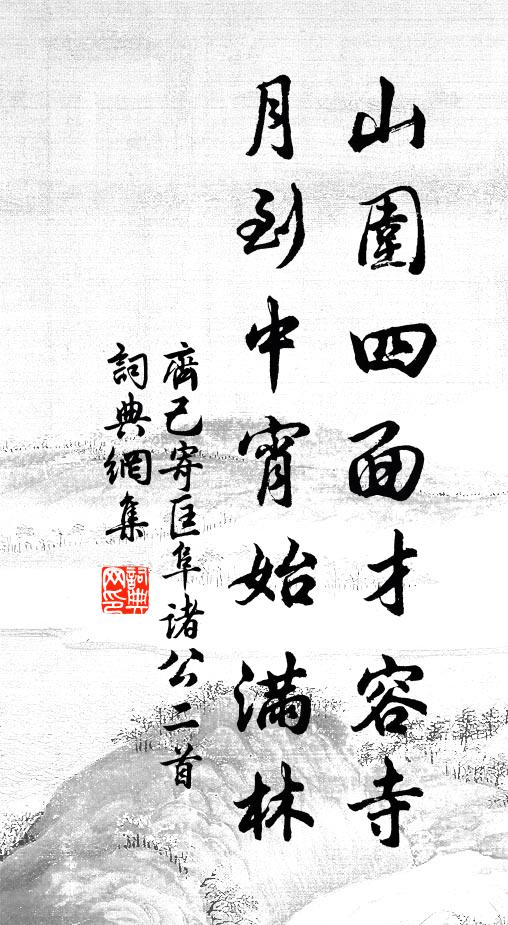 山圍四面才容寺
月到中宵始滿林
齊己寄匡阜诸公二首
詞典網集
詞典网印